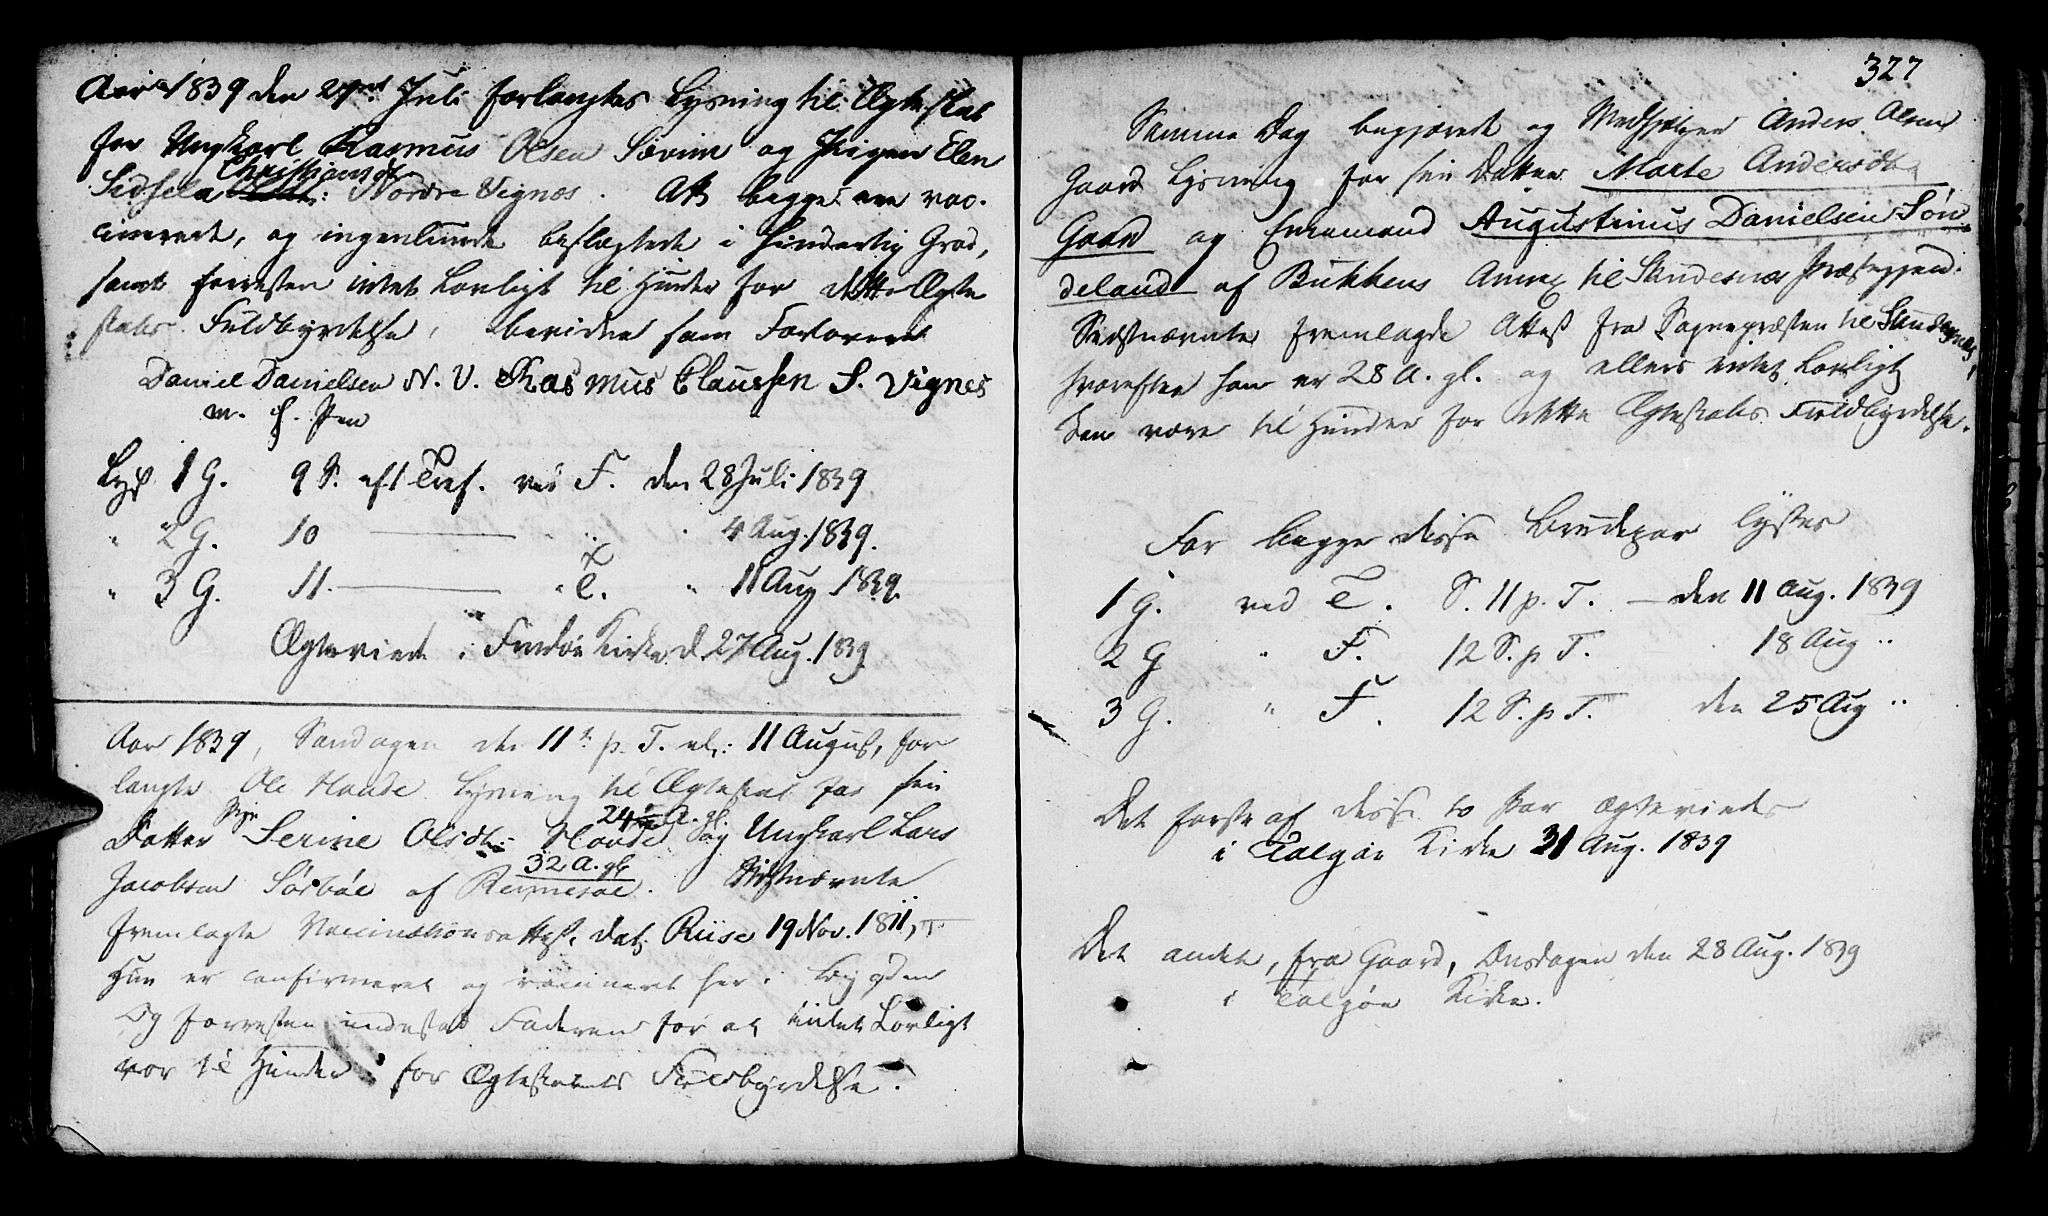 Aar 1839 den 27de Juli forlangtes Lysning til Ægteskab
for Ungkarl Rasmus Olsen Sævim og Pigen Elen
Christiansdr
Sidsela Nordre Vignæs. At begge ere vac-
cinerede, og ingenlunde beslægtede i hinderlig Grad,
samt forresten intet Lovligt til Hinder for dette Ægte
skabs Fuldbyrdelse, bevidne som Forlovere
Daniel Danielsen N. V. Rasmus Claussen S. Vignes
m. f. Pen
Lyst 1 G. 9 S. eft Tref. ved F. den 28 Juli 1839
" 2 G. 10 " " 4 Aug. 1839.
" 3 G. 11. " T. " 11 Aug 1839.
Ægteviede i Findøe Kirke d. 27 Aug. 1839
Aar 1839, Søndagen den 11te p. T. el: 11 August, for
langte Ole Haude Lysning til Ægteskab for sin
Pige 24 A. gl.
Datter Serine Olsdtr Houde og Ungkarl Lars
32 A. gl.
Jacobsen Sørbøe af Rennesøe. Sidstnævnte
fremlagte Vaccinationsattest, dat. Riise 19 Nov. 1811,
Hun er confirmeret og vaccineret her i Bygden
Og forresten indestod Faderen for at intet Lovligt
var til Hinder for Ægteskabets Fuldbyrdelse.
327
Samme Dag begjærede og Medhjelper Anders Olsen
Gaard Lysning for sin Datter Marte Andersdtr
Gaard og Enkemand Augustinus Danielsen Søn
deland af Bukkens Annex til Skudesnæs Præstegjæld.
Sidstnævnte fremlagde Attest fra Sognepræsten til Skudesnæs,
hvorefter han er 28 A. gl. og ellers intet Lovligt
kan være til Hinder for dette Ægteskabs Fuldbyrdelse.
For begge disse Brudepar lystes
1 G. ved T. S. 11 p. T. — den 11 Aug. 1839
2 G " F. 12 S. p T. 18 Aug "
3 G. " F. 12 S. p T. den 25 Aug "
Det første af disse to Par ægteviedes
i Talgøe Kirke 31 Aug. 1839
Det andet, fra Gaard, Onsdagen den 28 Aug. 1839
i Talgøe Kirke.